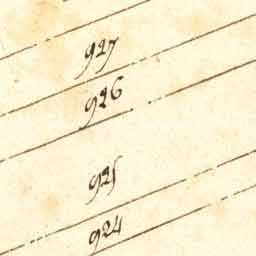 927
926
925
924